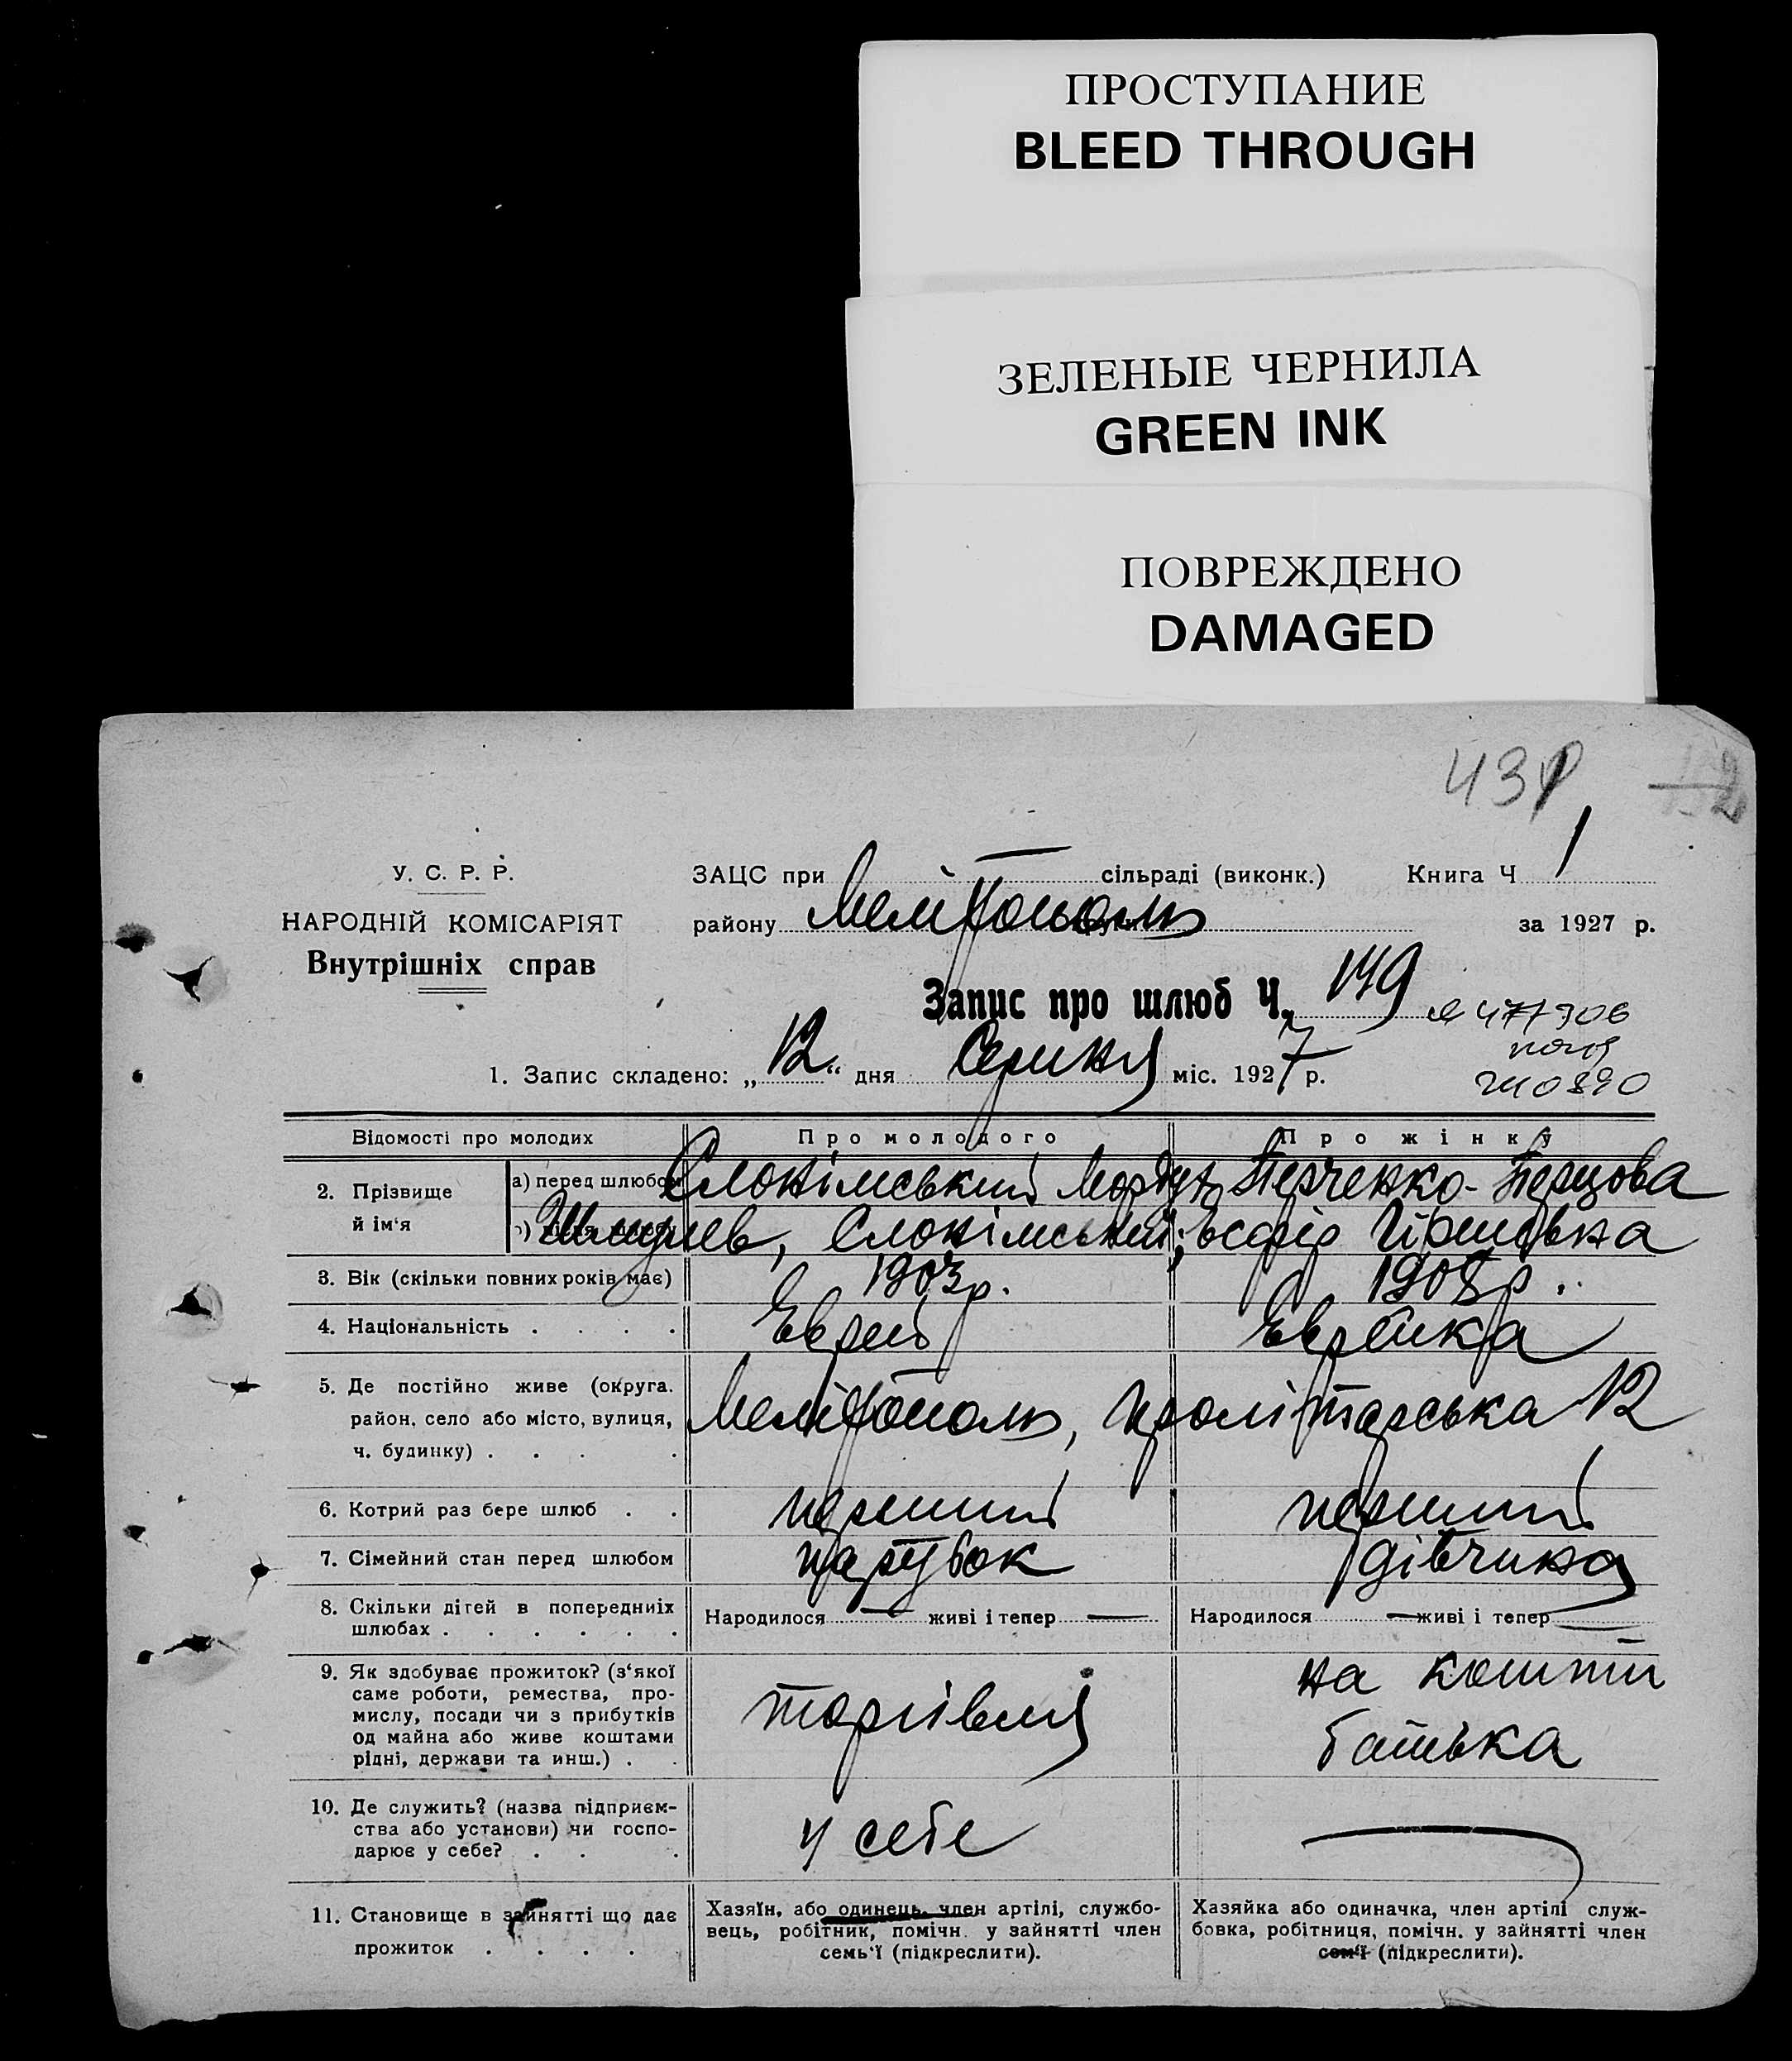 ПРОСТУПАНИЕ
BLEED THROUGH
ЗЕЛЕНЫЕ ЧЕРНИЛА
GREEN INK
ПОВРЕЖДЕНО
DAMAGED
У. С. Р. Р.
НАРОДНІЙ КОМІСАРІЯТ
Внутрішніх справ
ЗАЦС при — сільраді (виконк.) Книга Ч 1
району Мелітополь за 1927 р.
Запис про шлюб Ч. 149
1. Запис складено: „12“ дня Серпня міс. 1927 р.
Відомості про молодих Про молодого Про жінку
2. Прізвище й ім‘я
а) перед шлюбом Слонімський Мордух Перченко-Перцова
Слонімський; Гіршовна
3. Вік (скільки повних років має) 1903 р. 1908 р.
4. Національність . . . . Еврей Еврейка
5. Де постійно живе (округа.
район, село або місто, вулиця,
ч. будинку) . . . .
Мелітополь, Пролітарська 12
6. Котрий раз бере шлюб . . перший перший
7. Сімейний стан перед шлюбом парубок дівчина
8. Скільки дітей в попередниіх
шлюбах . . . . . .
Народилося — живі і тепер — Народилося — живі і тепер —
9. Як здобуває прожиток? (з‘якої
саме роботи, ремества, про-
мислу, посади чи з прибутків
од майна або живе коштами
рідні, держави та инш.) . .
торгівля
на кошти
батька
10. Де служить? (назва підприєм-
ства або установи) чи госпо-
дарює у себе? . . .
у себе —
11. Становище в зайнятті що дає
прожиток . . . .
Хазяїн, або одинець, член артілі, службо-
вець, робітник, помічн. у зайнятті член
семь‘ї (підкреслити).
Хазяйка або одиначка, член артілі служ-
бовка, робітниця, помічн. у зайнятті член
сем‘ї (підкреслити).